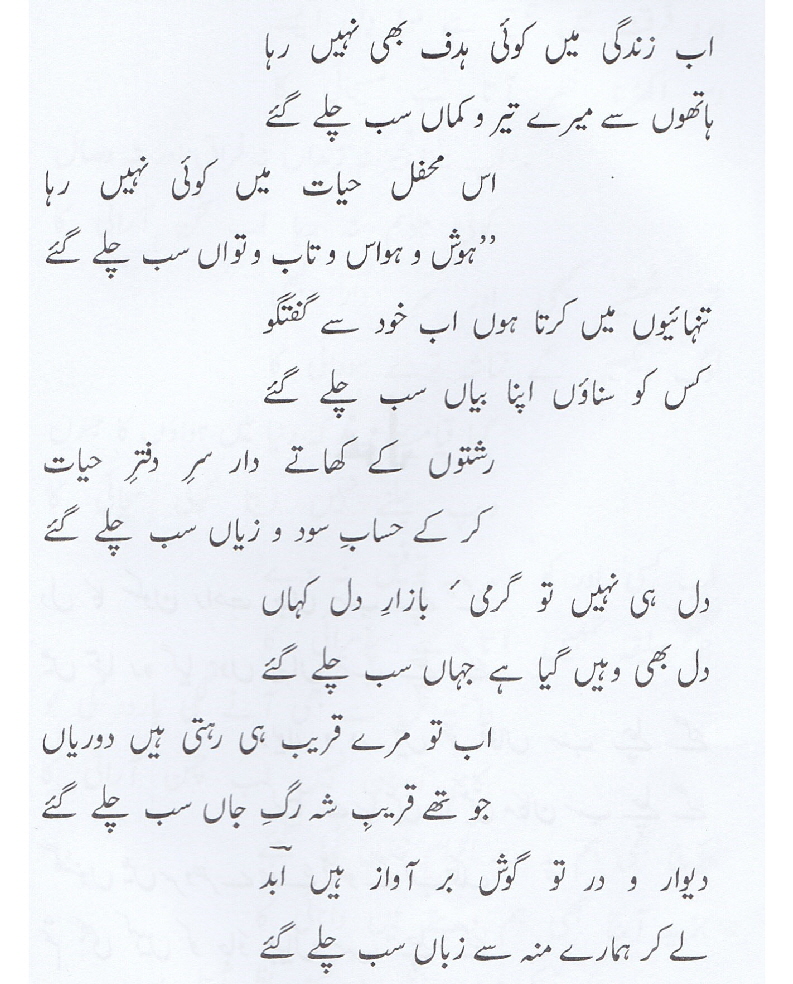 اب زندگی میں کوئی ہدف بھی نہیں رہا
ہاتھوں سے میرے تیر و کماں سب چلے گئے
اس محفل حیات میں کوئی نہیں رہا
”ہوش و ہواس و تاب و تواں سب چلے گئے
تنہائیوں میں کرتا ہوں اب خود سے گفتگو
کس کو سناؤں اپنا بیاں سب چلے گئے
رشتوں کے کھاتے دار سرِ دفترِ حیات
کر کے حسابِ سود و زیاں سب چلے گئے
دل ہی نہیں تو گرمی ٔ بازارِ دل کہاں
دل بھی وہیں گیا ہے جہاں سب چلے گئے
اب تو مرے قریب ہی رہتی ہیں دوریاں
جو تھے قریبِ شہ رگِ جاں سب چلے گئے
دیوار و در تو گوش بر آواز ہیں ابدؔ
لے کر ہمارے منہ سے زباں سب چلے گئے